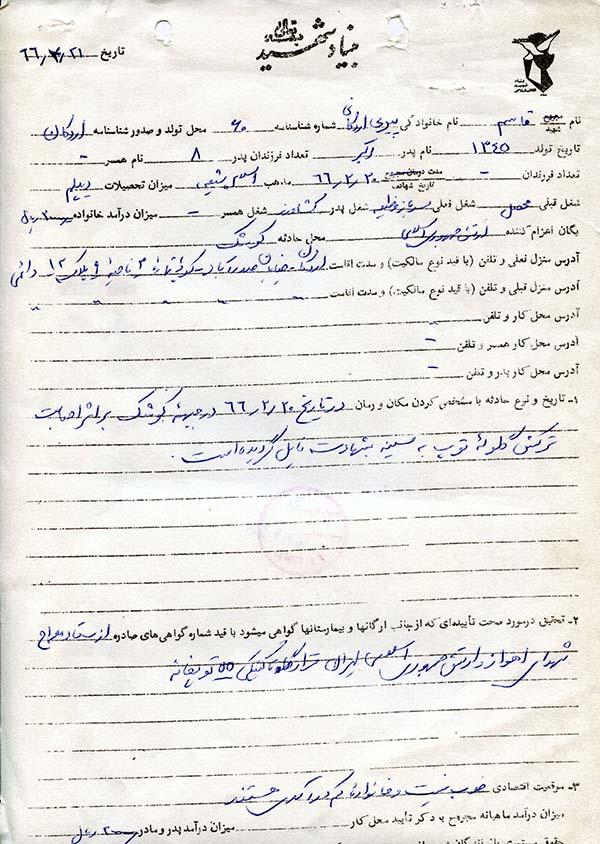 بنیاد شهید
تاریخ ۶۶/۳/۲۱
بنیاد شهید انقلاب اسلامی
نام شهید قاسم نام خانوادگی پیری اردکانی شماره شناسنامه ۶۰ محل تولد و صدور شناسنامه اردکان
تاریخ تولد ۱۳۴۵ نام پدر اکبر تعداد فرزندان پدر ۸ نام همسر -
تعداد فرزندان - تاریخ شهادت ۶۶/۲/۲۰ مذهب اسلام شیعی میزان تحصیلات دیپلم
شغل قبلی محصل شغل فعلی سرباز وظیفه شغل پدر کشاورز شغل همسر - میزان درآمد خانواده ریال
یگان اعزام کننده ارتش جمهوری اسلامی محل حادثه کوشک
آدرس منزل فعلی و تلفن (با قید نوع مالکیت) و مدت اقامت اردکان خیابان کوچه شماره ۳ ناحیه ۹ پلاک ۱۲ دائمی
آدرس منزل قبلی و تلفن (با قید نوع مالکیت) و مدت اقامت " " " "
آدرس محل کار و تلفن -
آدرس محل کار همسر و تلفن -
آدرس محل کار پدر و تلفن -
۱- تاریخ و نوع حادثه با مشخص کردن مکان و زمان در تاریخ ۶۶/۲/۲۰ در جبهه کوشک بر اثر اصابت
ترکش گلوله توپ به سینه بشهادت نایل گردیده است.
۲- تحقیق درمورد صحت تأییدهای که از جانب ارگانها و بیمارستانها گواهی میشود با قید شماره گواهی‌های صادره از ستاد معراج
شهدای اهواز و ارتش جمهوری اسلامی ایران ۵۵ توپخانه
۳- موقعیت اقتصادی خوب نیست و خانواده کم درآمدی هستند
میزان درآمد ماهیانه مجروح با ذکر تأیید محل کار میزان درآمد پدر و مادر ریال